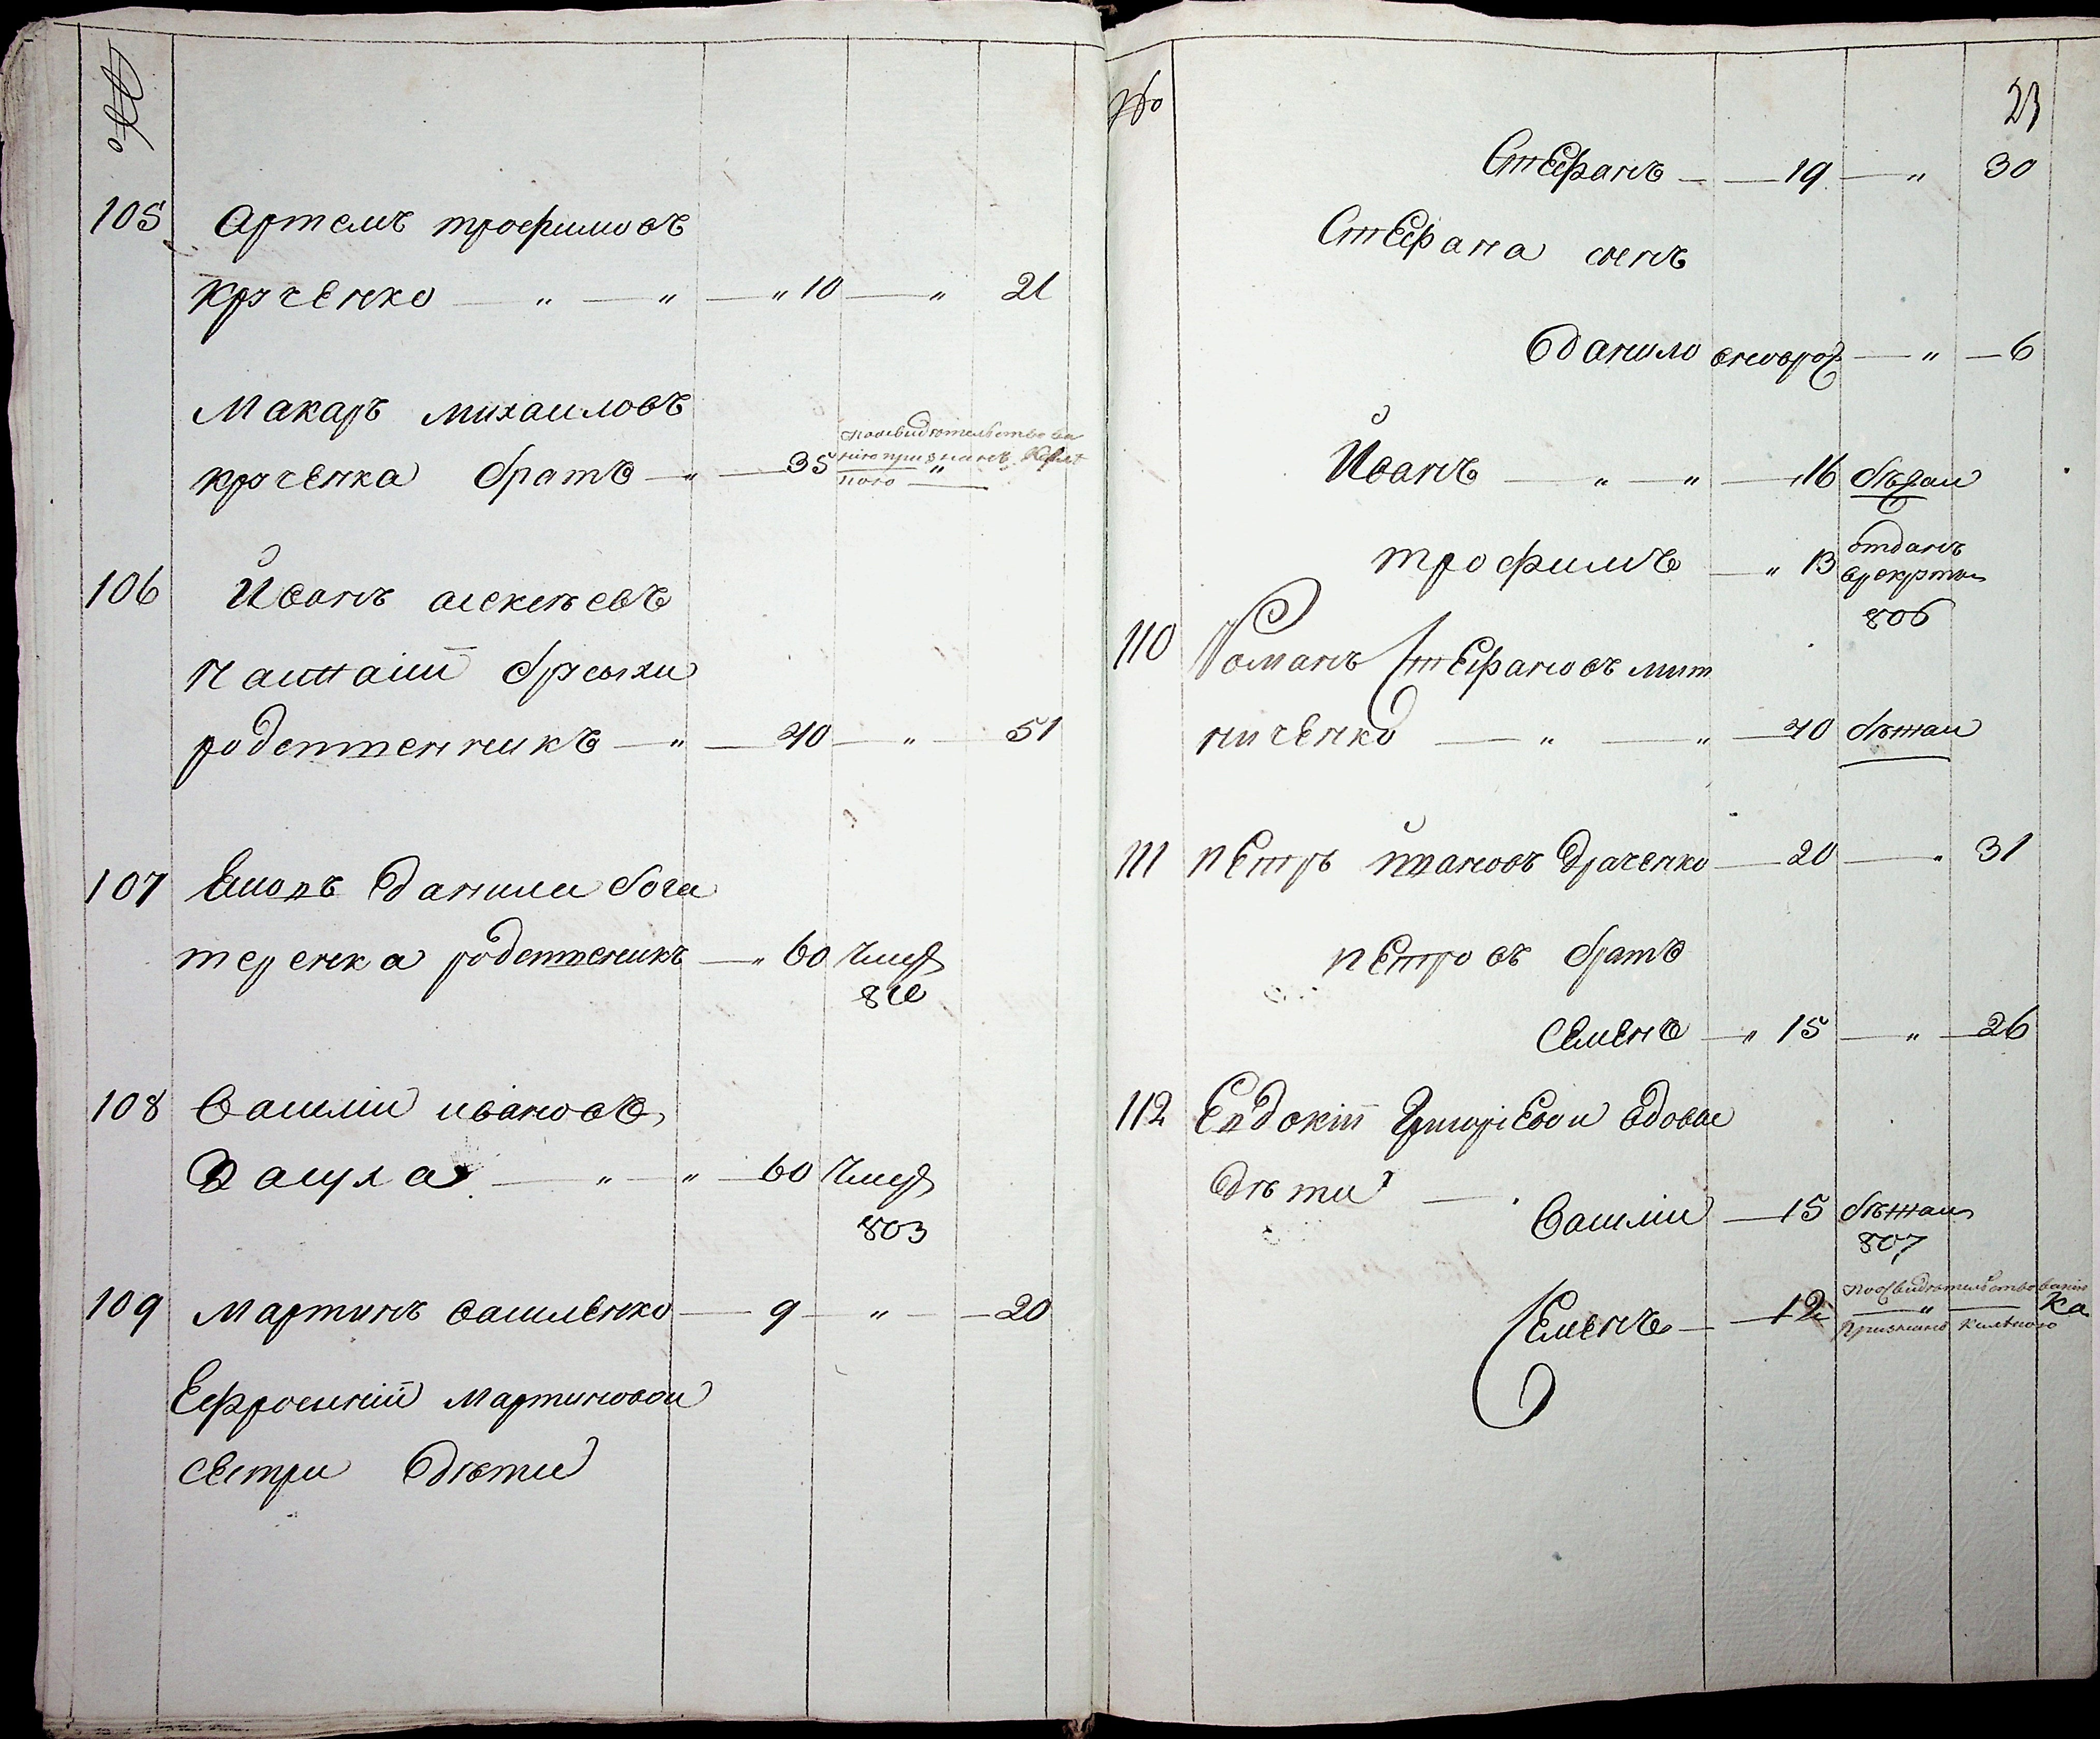 №
105 Артемъ трофимовъ
крученко — „ — „ — „ 10 — „ 21
Макаръ михаиловъ
крученка братъ — „ — 35 поосвидѣтельствова
нію признанъ
106 Иванъ алексѣевъ
родственникъ — „ — 40 — „ — 51
107 Данили бога
теренка родственикъ — „ 60 умер
108 Василии ивановъ
— „ — „ — 60 умер
803
109 Мартинъ василенко — 9 — „ — 20
Ефросиніи Мартиновои
сестри дѣти
№ 23
Стефанъ — — 19 — „ 30
Стефана синъ
данило вновро — „ — 6
Иванъ — „ — „ — „16 бѣжал
трофимъ — „ 13 отданъ
врекруты
806
110 Романъ Стефановъ мит
ниченко — „ — „ — 40 бѣжал
111 петръ ивановъ драченко — 20 — „ 31
петровъ братъ
семенъ — „ 15 — „ — 26
112 Евдокіи Григоріевои вдовы
дѣти —
Василии — 15 бѣжал
807
Семенъ — — 12 поосвидѣтельствованію
— „ —
признанъ